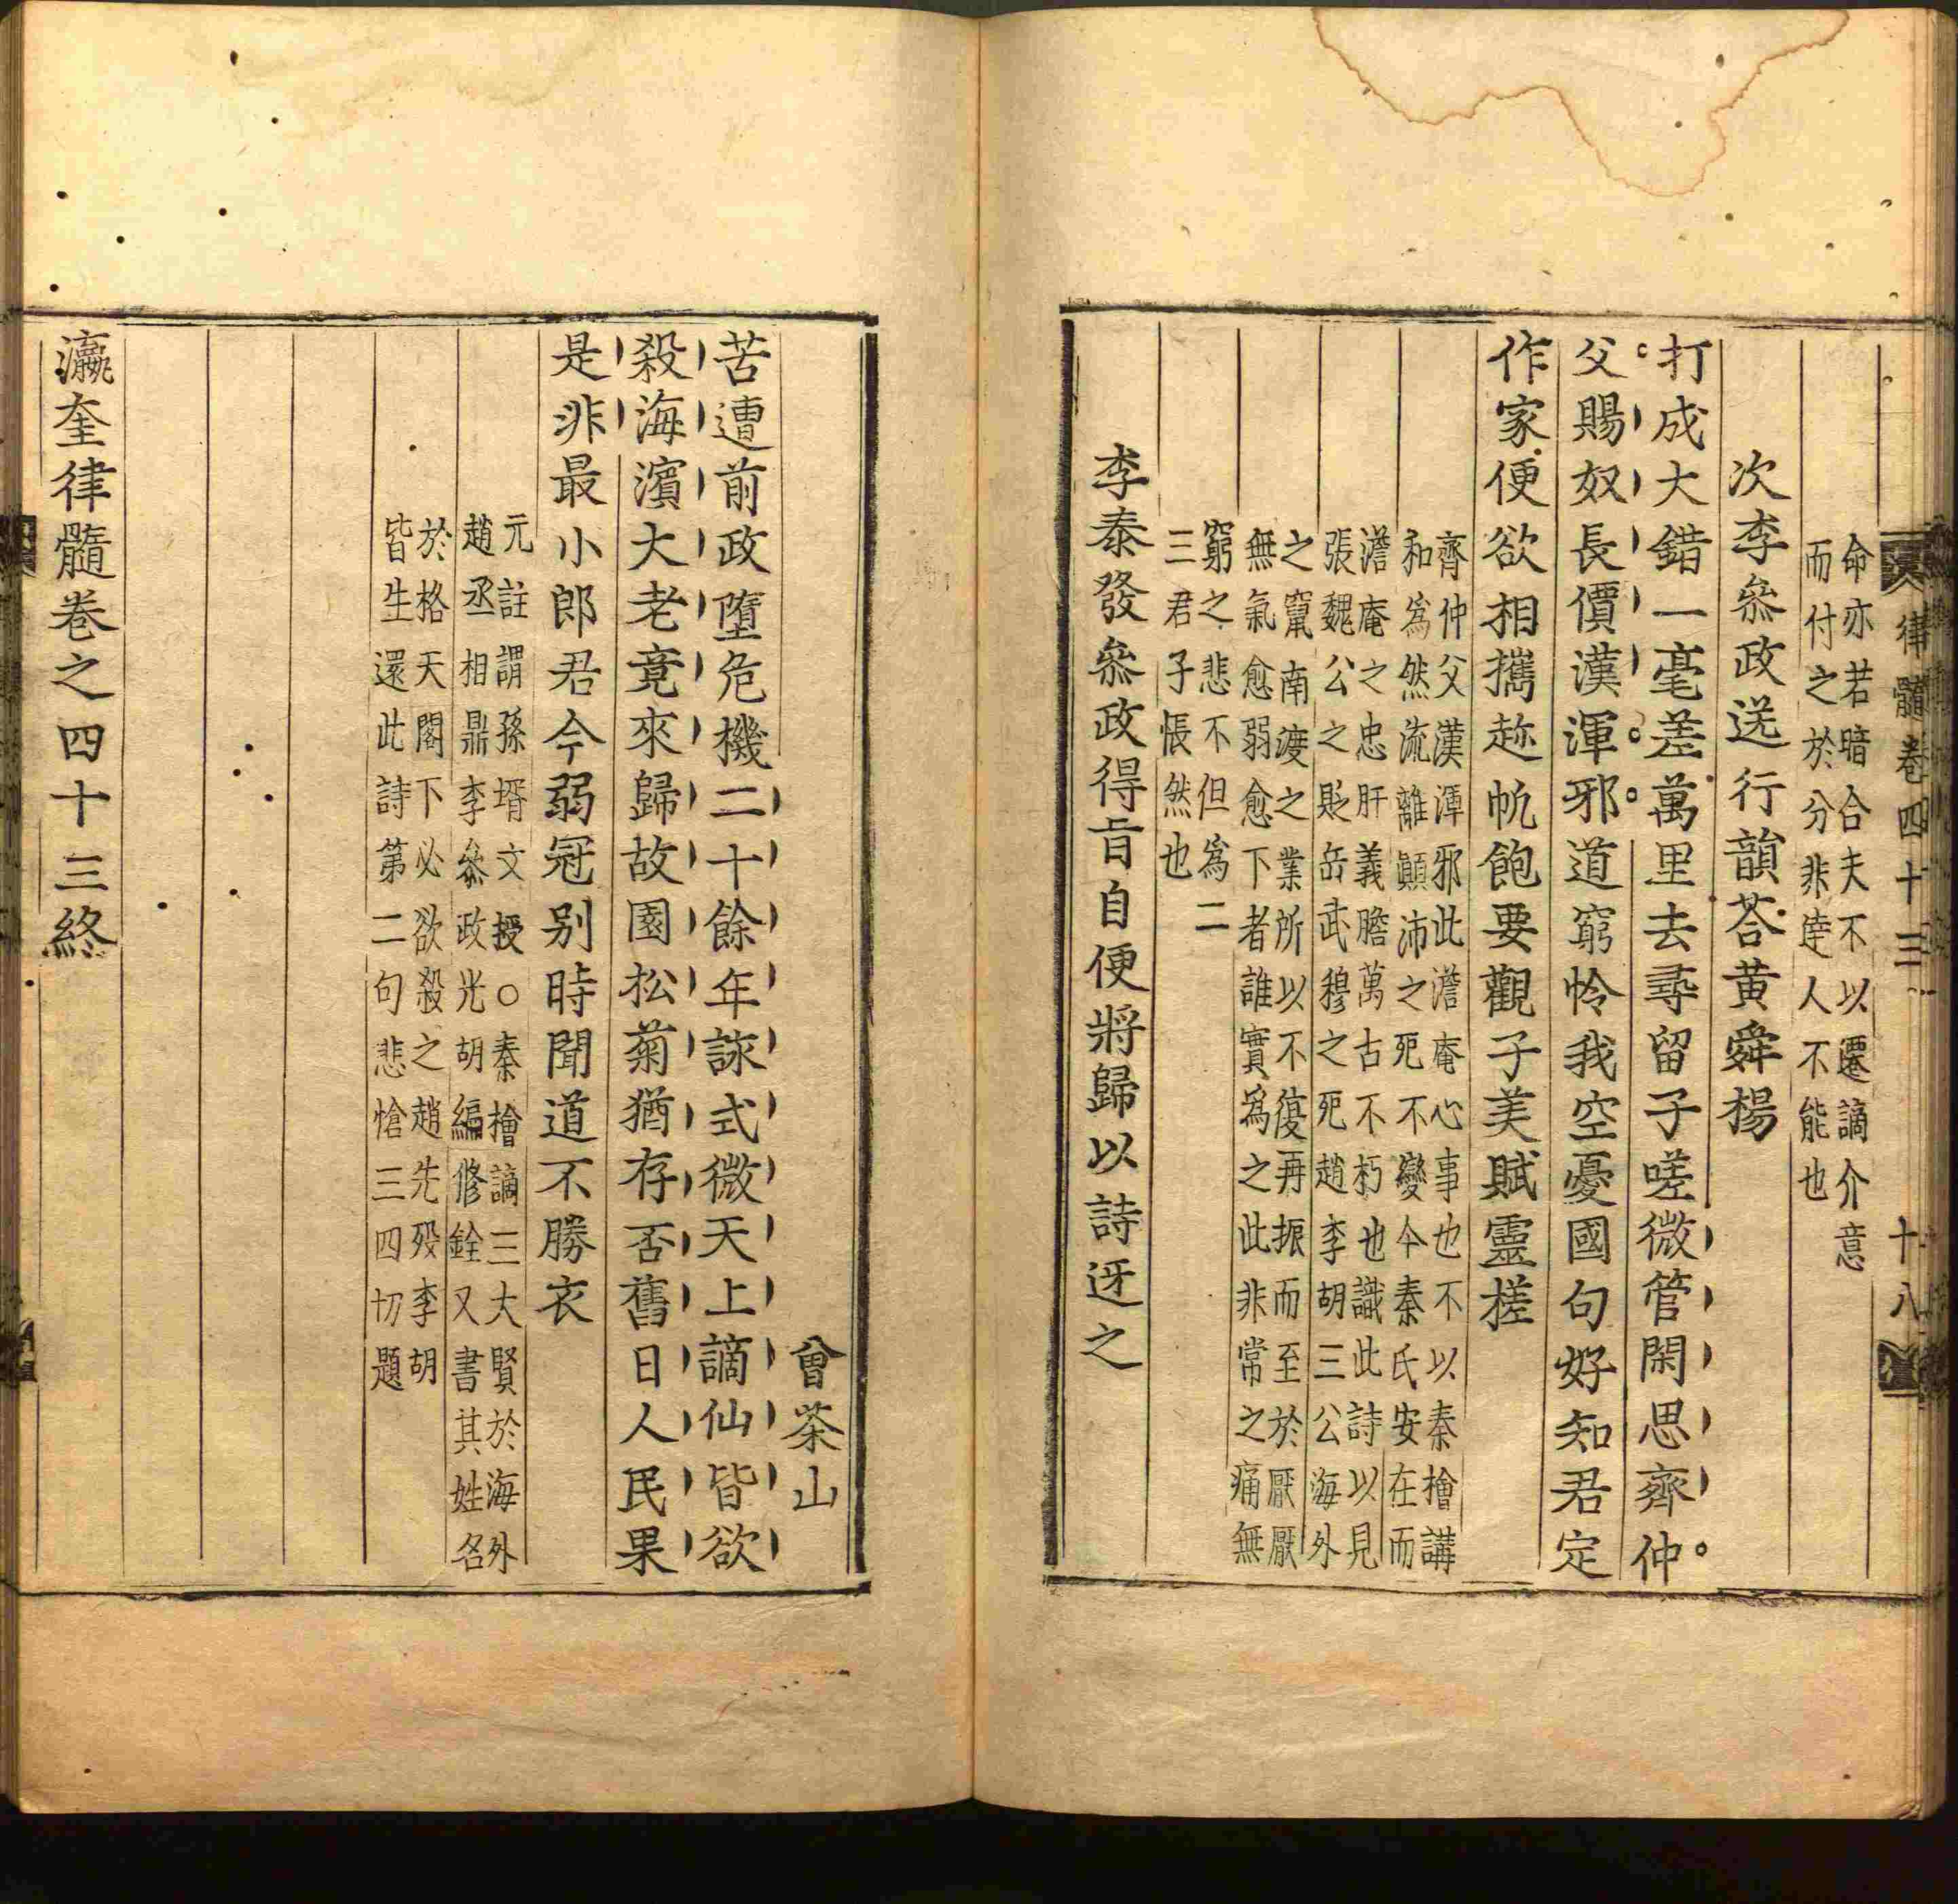 律髓卷四十三
十八
命亦若暗合夫不以遷謫介意
而付之於分非達人不能也
次李叅政送行韻荅黄舜楊
打成大錯一毫差萬里去尋留子嗟微管閑思齊仲
父賜奴長價漢渾邪道窮怜我空憂國句好知君定
作家便欲相攜趂帆飽要觀子美賦靈槎
齊仲父漢渾邪此澹庵心事也不以秦檜講
和為然流離顛沛之死不變今秦氏安在而
澹庵之忠肝義膽萬古不朽也識此詩以見
張魏公之貶岳武穆之死趙李胡三公海外
之竄南渡之業所以不復再振而至於厭厭
無氣愈弱愈下者誰實為之此非常之痛無
窮之悲不但為二
三君子悵然也
李泰發叅政得旨自便將歸以詩迓之
曾茶山
苦遭前政墮危機二十餘年詠式微天上謫仙皆欲
殺海濱大老竟來歸故園松菊猶存否舊日人民果
是非最小郎君今弱冠别時聞道不勝衣
元註謂孫壻文授○秦檜謫三大賢於海外
趙丞相鼎李叅政光胡編修銓又書其姓名
於格天閣下必欲殺之趙先歿李胡
皆生還此詩第二句悲愴三四切題
瀛奎律髓卷之四十三終